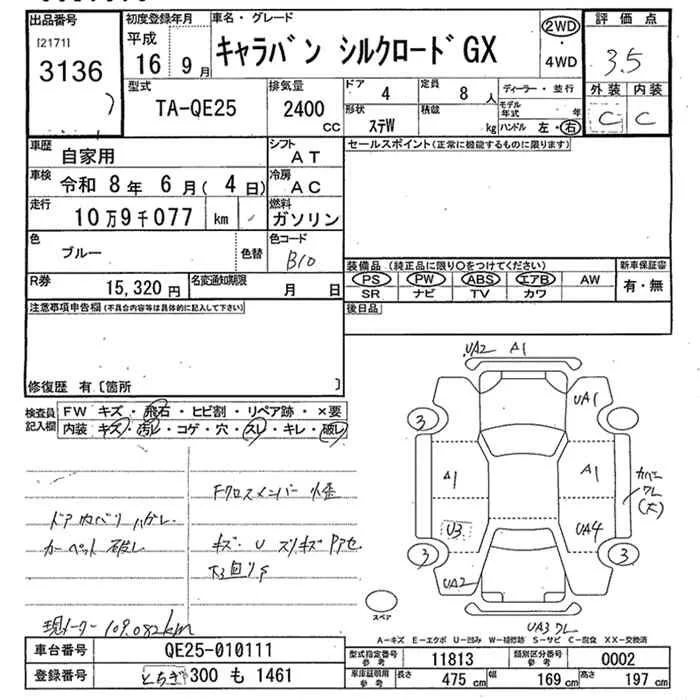 出品番号 初度登録年月 車名・グレード 2WD・4WD 評価点
[2171]
3136
平成 16 9月
キャラバン シルクロードGX
3.5
型式 TA-QE25
排気量 2400 CC
ドア 4 定員 8 人 ディーラー・並行
形状 ステW 積載 kg モデル年式 年 ハンドル 左・右
外装 内装
C C
車歴 自家用 シフト AT
セールスポイント(正常に機能するものに限ります)
車検 令和 8年 6月(4日) 冷房 AC
走行 10万9千077 km 燃料 ガソリン
色 ブルー 色替 色コード B10
装備品(純正品に限り○をつけてください) 新車保証書
PS PW ABS エアB AW 有・無
SR ナビ TV カワ
R券 15,320円 名変通知期限 月 日
注意事項申告欄(不具合内容等は具体的に記入して下さい)
後日品
修復歴 有〔箇所 〕
検査員記入欄 FW キズ・飛石・ヒビ割・リペア跡・×要
内装 キズ・汚レ・コゲ・穴・スレ・キレ・破レ
Fクロスメンバー
ドア内ベリ ハガレ
カーペット 破レ
キズ・U スリキズ
下回りS
現メーター 109.082km
UA2 A1
UA1
3
A1 A1
U3 UA4
カバーワレ(大)
3 3
UA2
スペア
UA3 ワレ
A－キズ E－エクボ U－凹み W－補修跡 S－サビ C－腐食 XX－交換済
車台番号 QE25-010111
登録番号 とちぎ 300 も 1461
型式指定番号 参考 11813 類別区分番号 参考 0002
車庫証明用 参考 長さ 475 cm 幅 169 cm 高さ 197 cm